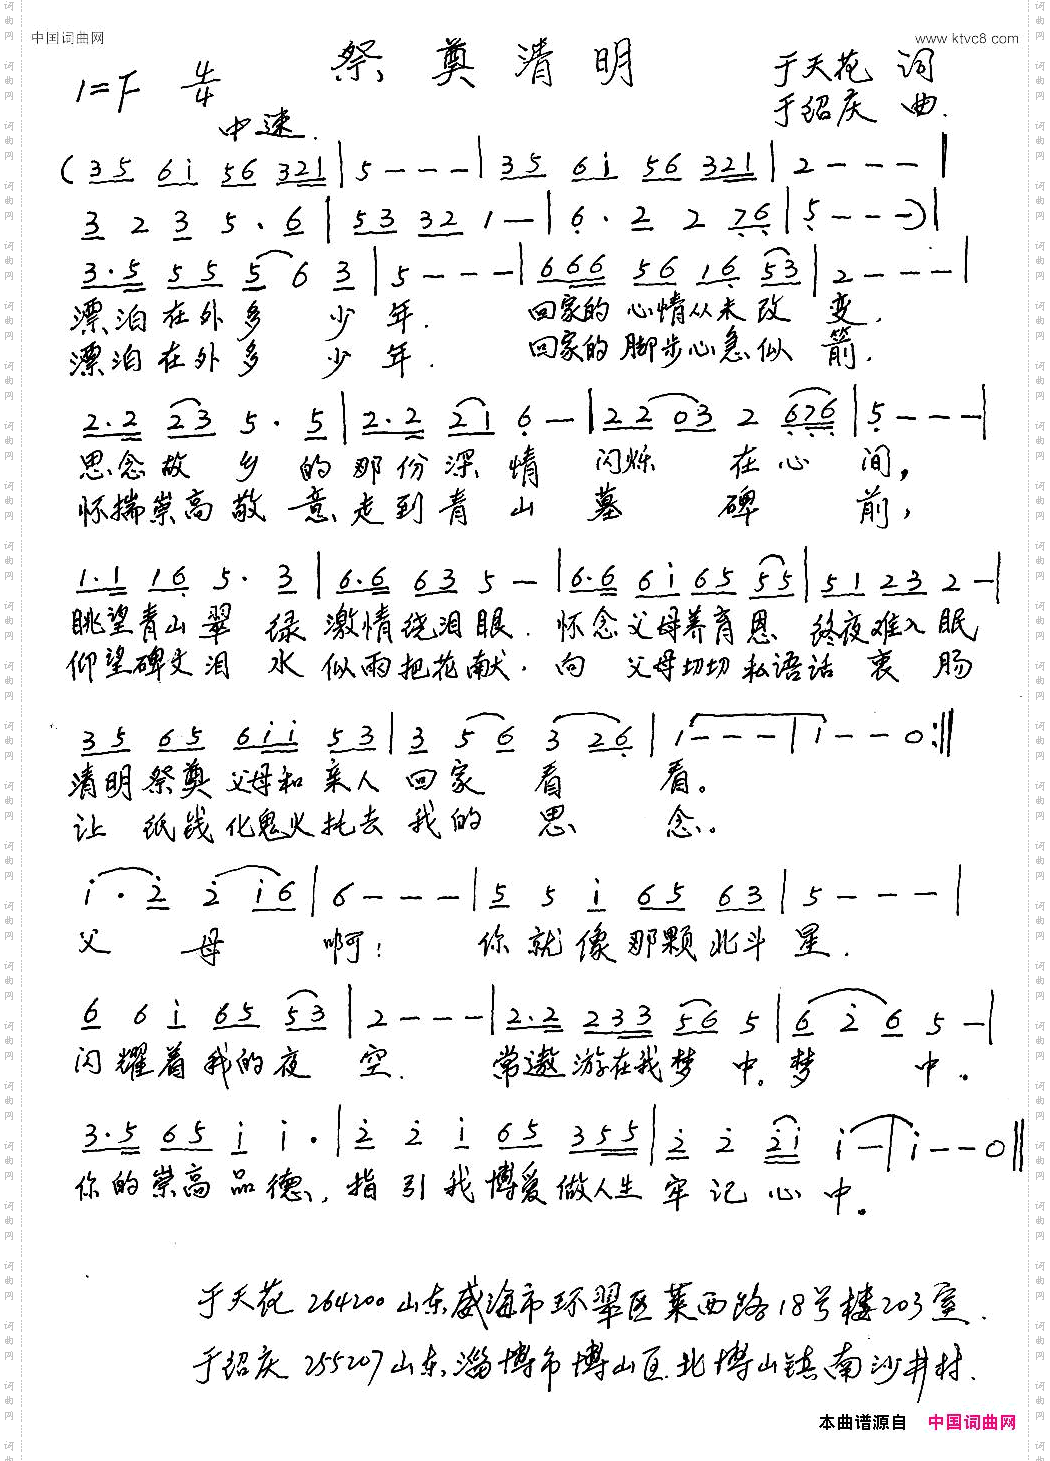 中国词曲网
www.ktvc8.com
祭奠清明
于天花 词
1=F 4/4
于绍庆 曲.
中速.
(35 6i 56 321|5---|35 6i 56 321|2---|
3 2 3 5·6|53 32 1-|6·2 2 76|5---)|
3·5 55 5 6 3|5---|666 56 16 53|2---|
漂泊在外多 少年. 回家的心情从未改变.
漂泊在外多 少年. 回家的脚步心急似箭.
2·2 23 5·5|2·2 21 6-|22 03 2 676|5---|
思念故乡的那份深情 闪烁 在心间,
怀揣崇高敬意走到青山 墓 碑 前,
1·1 16 5·3|6·6 63 5-|6·6 6i 65 55|51 23 2-|
眺望青山翠绿 激情绕泪眼. 怀念父母养育恩 终夜难入眠
仰望碑文泪水 似雨把花献. 向父母切切私语话衷肠
35 65 6ii 53|3 56 3 26|1---|1--0:||
清明祭奠父母和亲人回家看 看。
让纸钱化鬼火托去我的思 念。
i·2 2 i6|6---|5 5 i 65 63|5---|
父 母 啊! 你就像那颗北斗星.
6 6 i 65 53|2---|2·2 233 56 5|6 2 6 5-|
闪耀着我的夜空. 常遨游在我梦中。梦中。
3·5 65 i i·|2 2 i 65 355|2 2 2i i-|i--0||
你的崇高品德, 指引我博爱做人生牢记心中。
于天花 264200山东威海市环翠区莱西路18号楼203室.
于绍庆 255207山东淄博市博山区北博山镇南沙井村.
本曲谱源自 中国词曲网